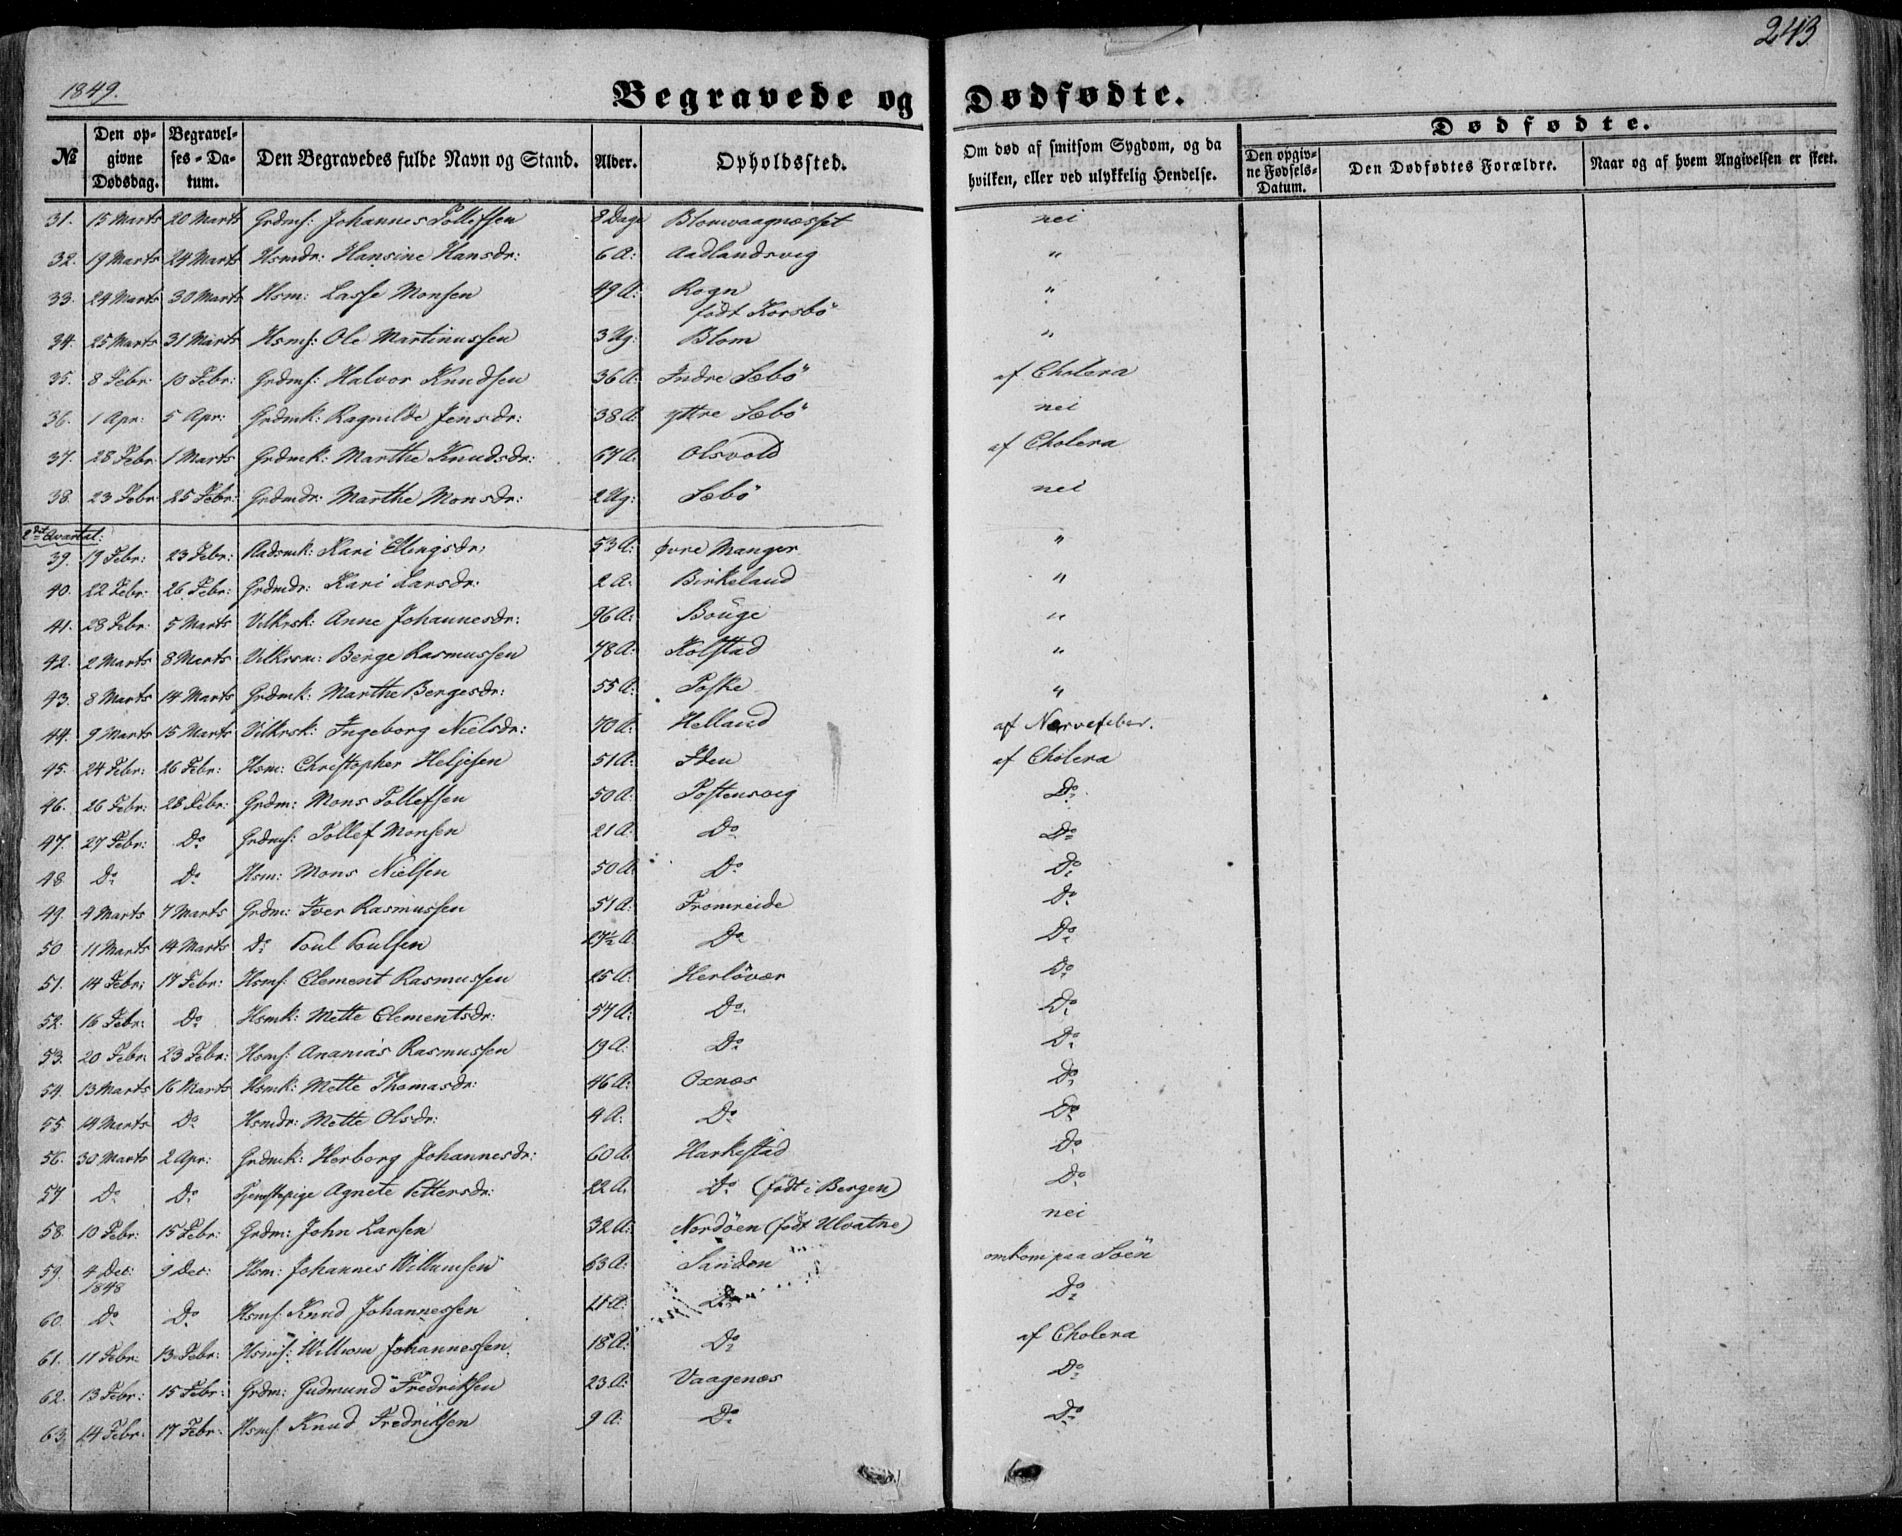 243
1849.
Begravede og Dødfødte.
Dødfødte.
№ | Den opgivne Dødsdag. | Begravelses-Datum. | Den Begravedes fulde Navn og Stand. | Alder. | Opholdssted. | Om død af smitsom Sygdom, og da hvilken, eller ved ulykkelig Hendelse. | Den opgivne Fødsels-Datum. | Den Dødfødtes Forældre. | Naar og af hvem Angivelsen er skeet.
31. 15 Marts 20 Marts Grdms: Johannes Tollefsen 8 Dage Blomvaagnæsset nei
32. 19 Marts 24 Marts Hsmdr: Hansine Hansdr: 6 A: Aadlandsvig "
33. 24 Marts 30 Marts Hsm: Lasse Monsen 49 A: Rogn "
født Korsbö
34. 25 Marts 31 Marts Hsms: Ole Martinussen 3 Ug: Blom "
35. 8 Febr: 10 Febr: Grdms: Halvor Knudsen 36 A: Indre Sæbö af Cholera
36. 1 Apr: 5 Apr: Grdmk: Ragnilde Jensdr: 38 A: yttre Sæbö nei
37. 28 Febr: 1 Marts Grdmk: Marthe Knudsdr: 67 A: Olsvold af Cholera
38. 23 Febr: 25 Febr: Grdmdr: Marthe Monsdr: 2 Ug: Sæbö nei
2det Qvartal:
39. 19 Febr: 23 Febr: Kari Ellingsdr: 53 A: øvre Manger "
40. 22 Febr: 26 Febr: Grdmdr: Kari Larsdr: 2 A: Birkeland "
41. 28 Febr: 5 Marts Vilkrsk: Anne Johannesdr: 96 A: Bouge "
42. 2 Marts 8 Marts Vilkrsm: Berge Rasmussen 78 A: Kolstad "
43. 8 Marts 14 Marts Grdmk: Marthe Bergesdr: 55 A: Toske "
44. 9 Marts 15 Marts Vilkrsk: Ingeborg Nielsdr: 70 A: Helland af Nervefeber.
45. 24 Febr: 26 Febr: Hsm: Christopher Heljesen 51 A: af Cholera
46. 26 Febr: 28 Febr: Grdm: Mons Tollefsen 50 A: Do
47. 27 Febr: Do Grdms: Tollef Monsen 21 A: Do Do
48 Do Do Hsm: Mons Nielsen 50 A: Do Do
49. 4 Marts 7 Marts Grdm: Iver Rasmussen 51 A: Fromreide Do
50 11 Marts 14 Marts Do Poul Poulsen 27½ A: Do Do
51. 14 Febr: 17 Febr: Hsms: Clement Rasmussen 25 A: Herlövær Do
52. 16 Febr: Do Hsmk: Mette Clementsdr: 54 A: Do Do
53. 20 Febr: 23 Febr: Hsms: Ananias Rasmussen 19 A: Do Do
54. 13 Marts 16 Marts Hsmk: Mette Thomasdr: 46 A: Oxnæs Do
55 14 Marts Do Hsmdr: Mette Olsdr: 4 A: Do Do
56. 30 Marts 2 Apr: Grdmk: Herborg Johannesdr: 60 A: Harkestad Do
57 Do Do Tjenstepige Agnete Pettersdr: 22 A. Do (født i Bergen) Do
58. 10 Febr: 15 Febr: Grdm: John Larsen 32 A: Nordöen (født Ulvatne) nei
59. 4 Dec: 9 Dec: Hsm: Johannes Willumsen 63 A: Sanden omkom paa Söen
1848
60. Do Do Hsms: Knud Johannessen 21 A: Do Do
61. 11 Febr: 13 Febr: Hsms: Willum Johannessen 18 A: Do af Cholera
62. 13 Febr: 15 Febr: Grdm: Gudmund Fredriksen 23 A: Vaagenæs Do
63. 14 Febr: 17 Febr: Hsms: Knud Fredriksen 9 A: Do Do